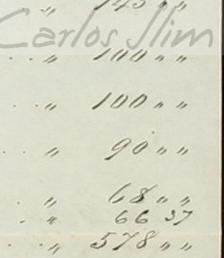 „ 145 „ „
Carlos Slim
„ 100 „ „
„ 100 „ „
. . „ 90 „ „
„ 68 „ „
„ 66 37
„ 578 „ „